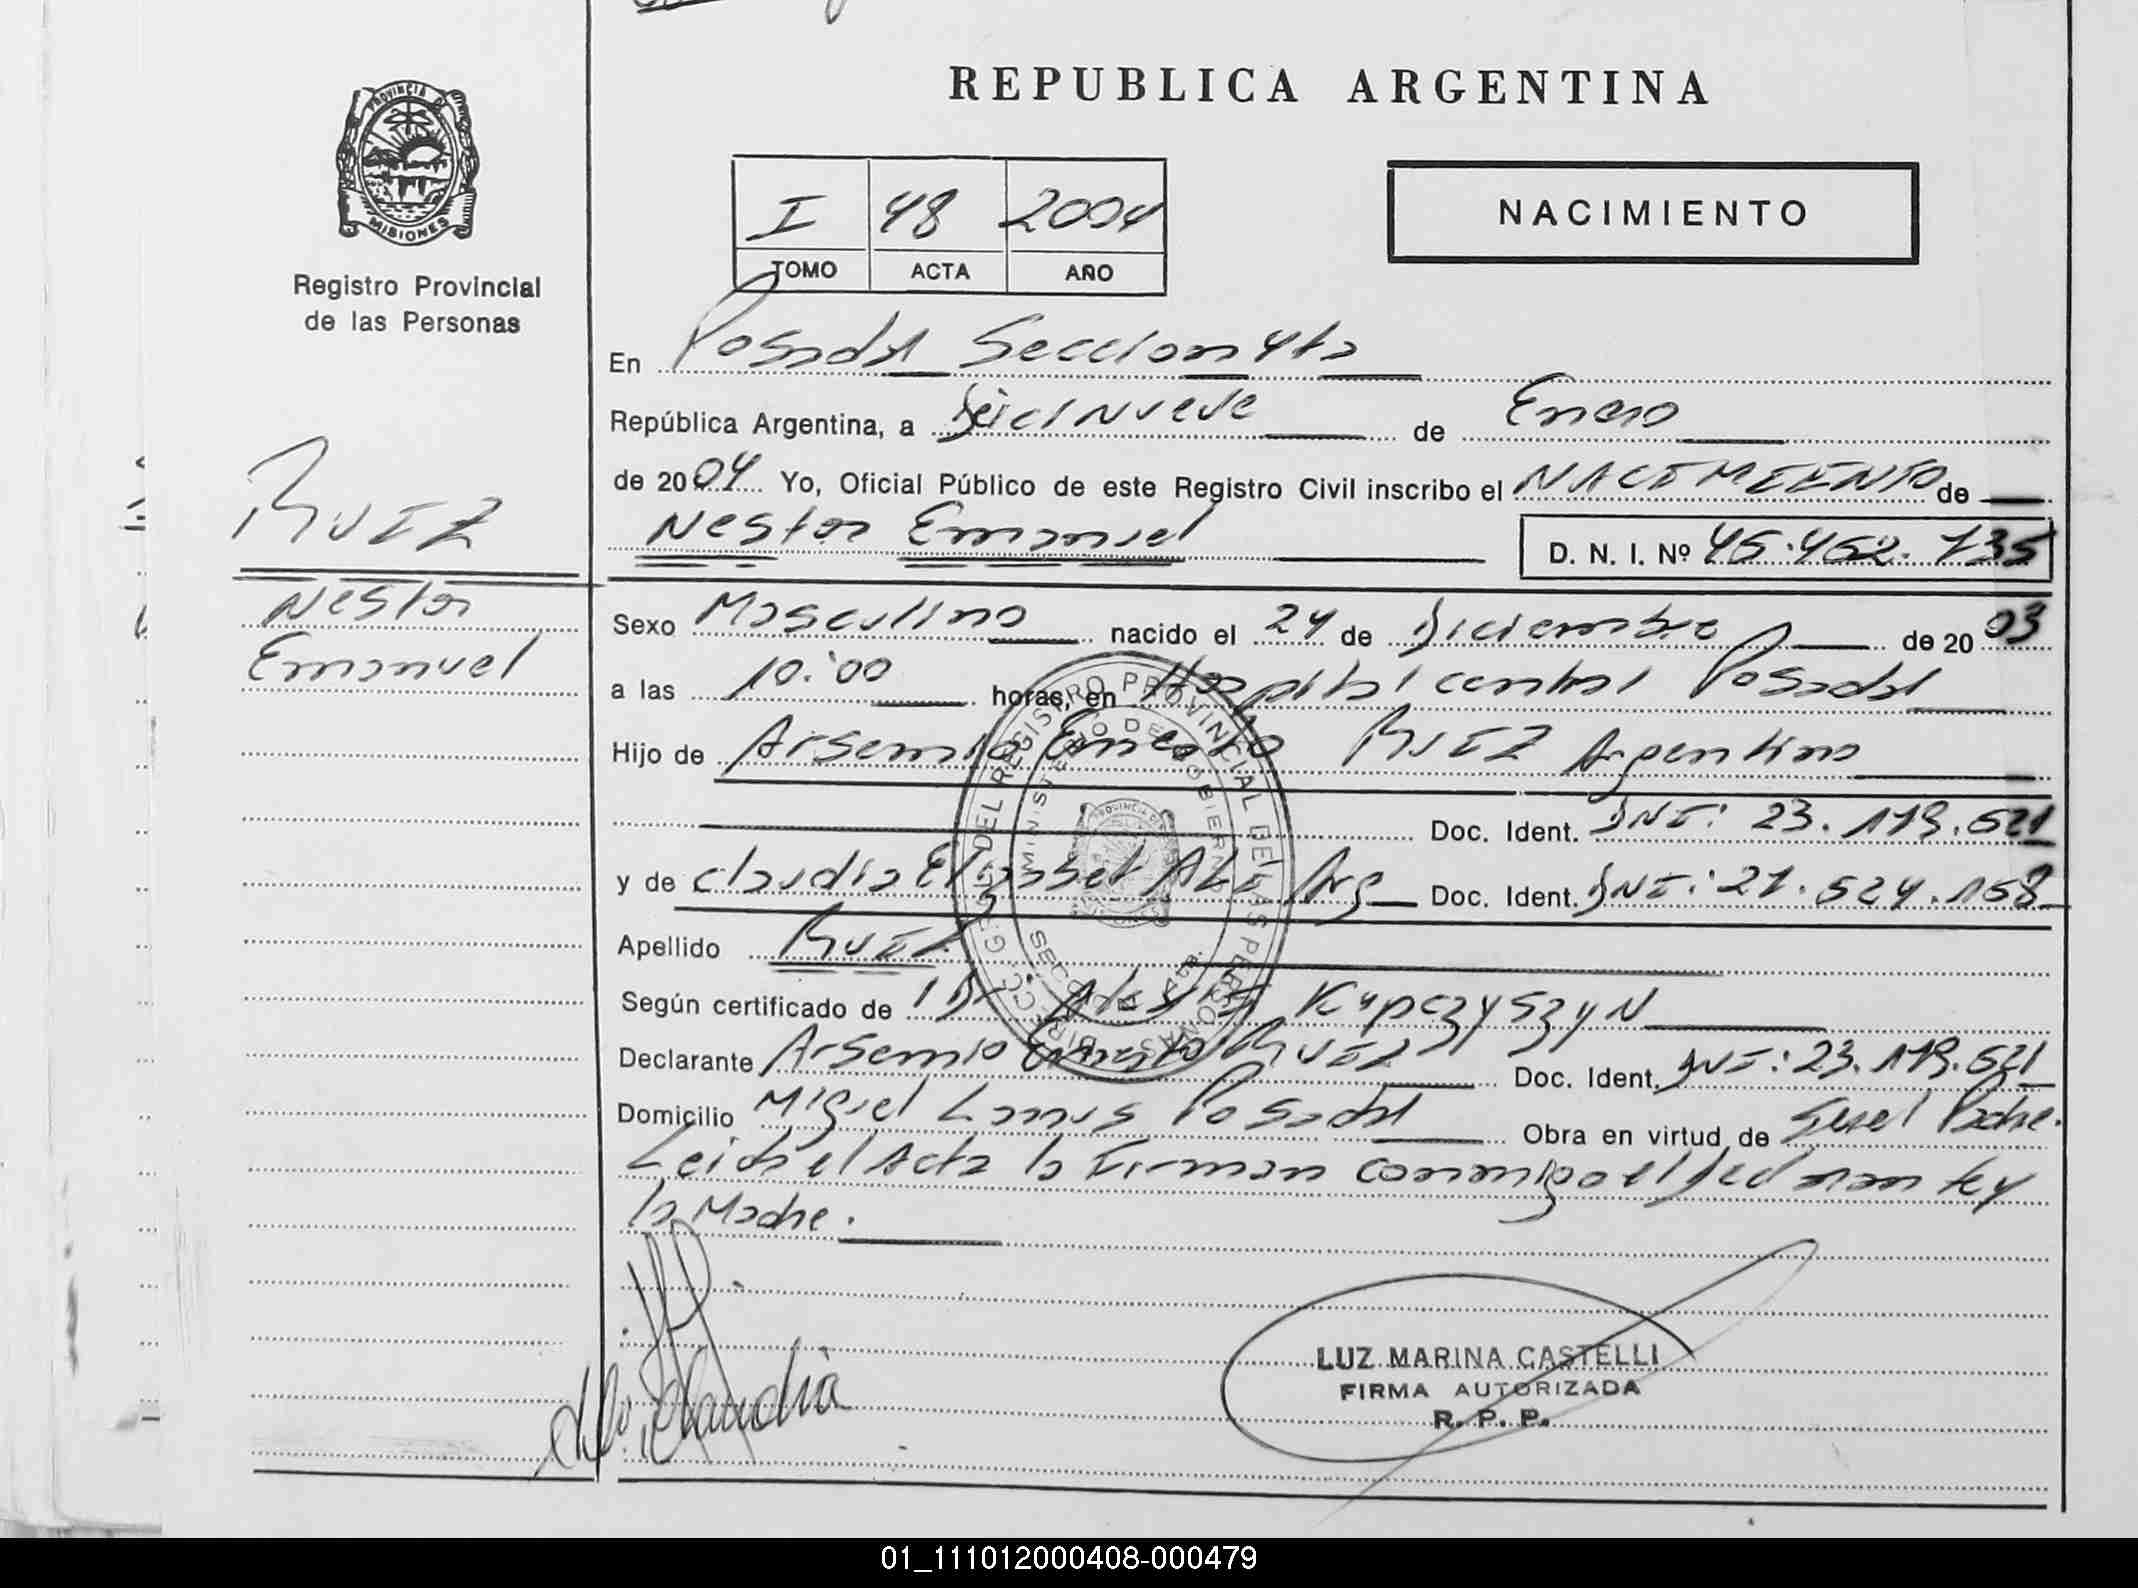 REPUBLICA ARGENTINA
PROVINCIA DE
MISIONES
Registro Provincial
de las Personas
I 48 2004
TOMO ACTA AÑO
NACIMIENTO
En Posadas Seccion 4ta
República Argentina, a Diecinueve de Enero
de 2004 Yo, Oficial Público de este Registro Civil inscribo el NACIMIENTO de
Nestor Emanuel D. N. I. Nº 45.452.735
RUIZ
Nestor
Emanuel
Sexo Masculino nacido el 24 de Diciembre de 2003
a las 10:00 horas, en Hospital central Posadas
Hijo de Arsemio Ernesto RUIZ Argentino
Doc. Ident. DNI: 23.179.521
y de Claudia Elizabet Arg Doc. Ident. DNI: 21.524.158
Apellido RUIZ
Según certificado de Kupczyszyn
Declarante Arsemio Ernesto RUIZ Doc. Ident. DNI: 23.179.521
Domicilio Miguel Lanus Posadas Obra en virtud de Ser el Padre.
Leida el Acta la Firman conmigo el declarante y
la Madre.
DIRECC. GRAL. DEL REGISTRO PROVINCIAL DE LAS PERSONAS
MINISTERIO DE GOBIERNO
Claudia
LUZ MARINA CASTELLI
FIRMA AUTORIZADA
R. P. P.
01_111012000408-000479